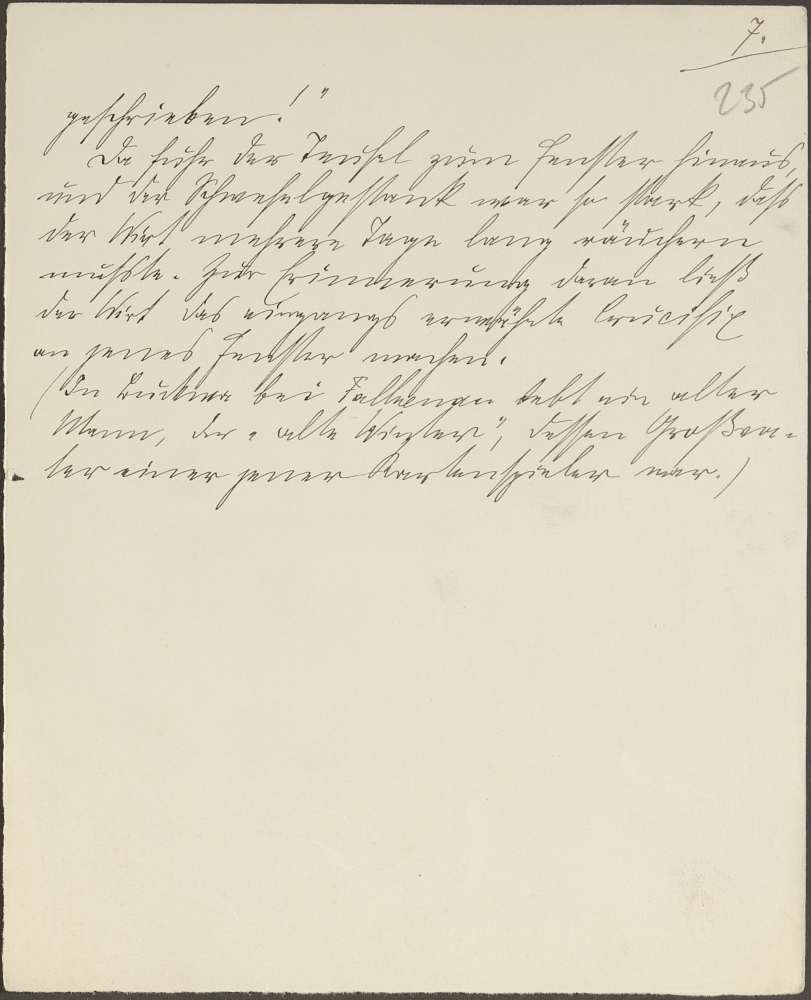 7.
235
geschrieben!"
Da fuhr der Teufel zum Fenster hinaus,
und der Schwefelgestank war so stark, dass
der Wirt mehrere Tage lang räuchern
musste. Zur Erinnerung daran ließ
der Wirt das eingangs erwähnte Crucifix
an jenes Fenster machen.
(In bei Falkenau lebt ein alter
Mann, der "alte Winter", dessen Großva-
ter einer jener Kartenspieler war.)